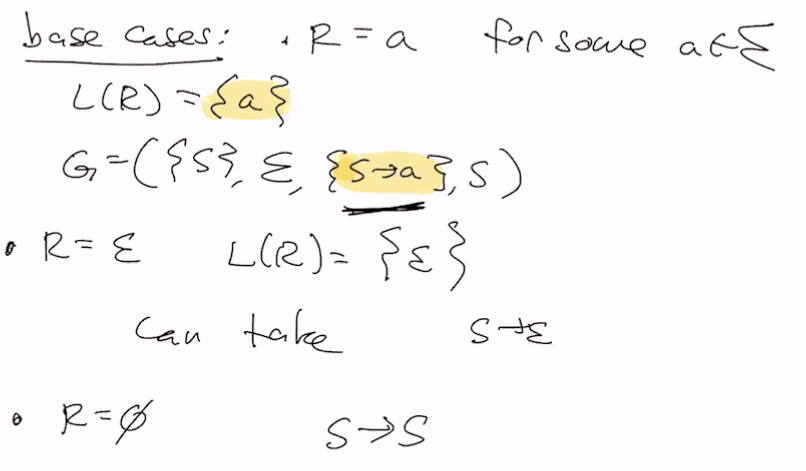 base cases: • R = a for some a ∈ Σ
L(R) = {a}
G = ({S}, Σ, {S→a}, S)
• R = ε L(R) = {ε}
can take S→ε
• R = ∅ S→S